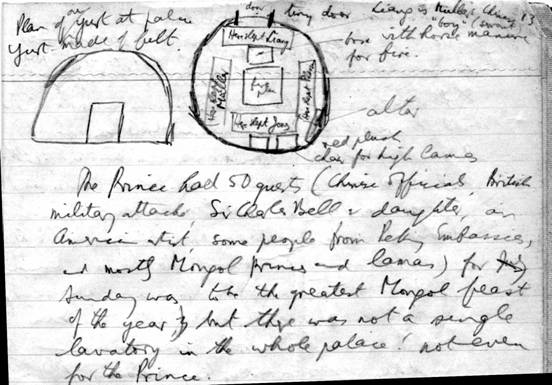 Plan of our yurt at palace
Yurt made of felt.
door
tiny door
Liang is Müller's Chinese
"boy" (servant)
13
box with horse manure
for fire.
Here slept Liang
Here slept Müller
fire place
Here slept
Here slept Joerg
altar
red plush
chair for high lamas
The Prince had 50 guests (Chinese officials, British
military attaché Sir Charles Bell & daughter, an
American artist, some people from Peking Embassies,
and mostly Mongol princes and lamas) for
Sunday was to be the greatest Mongol feast
of the year, but there was not a single
lavatory in the whole palace! not even
for the Prince.